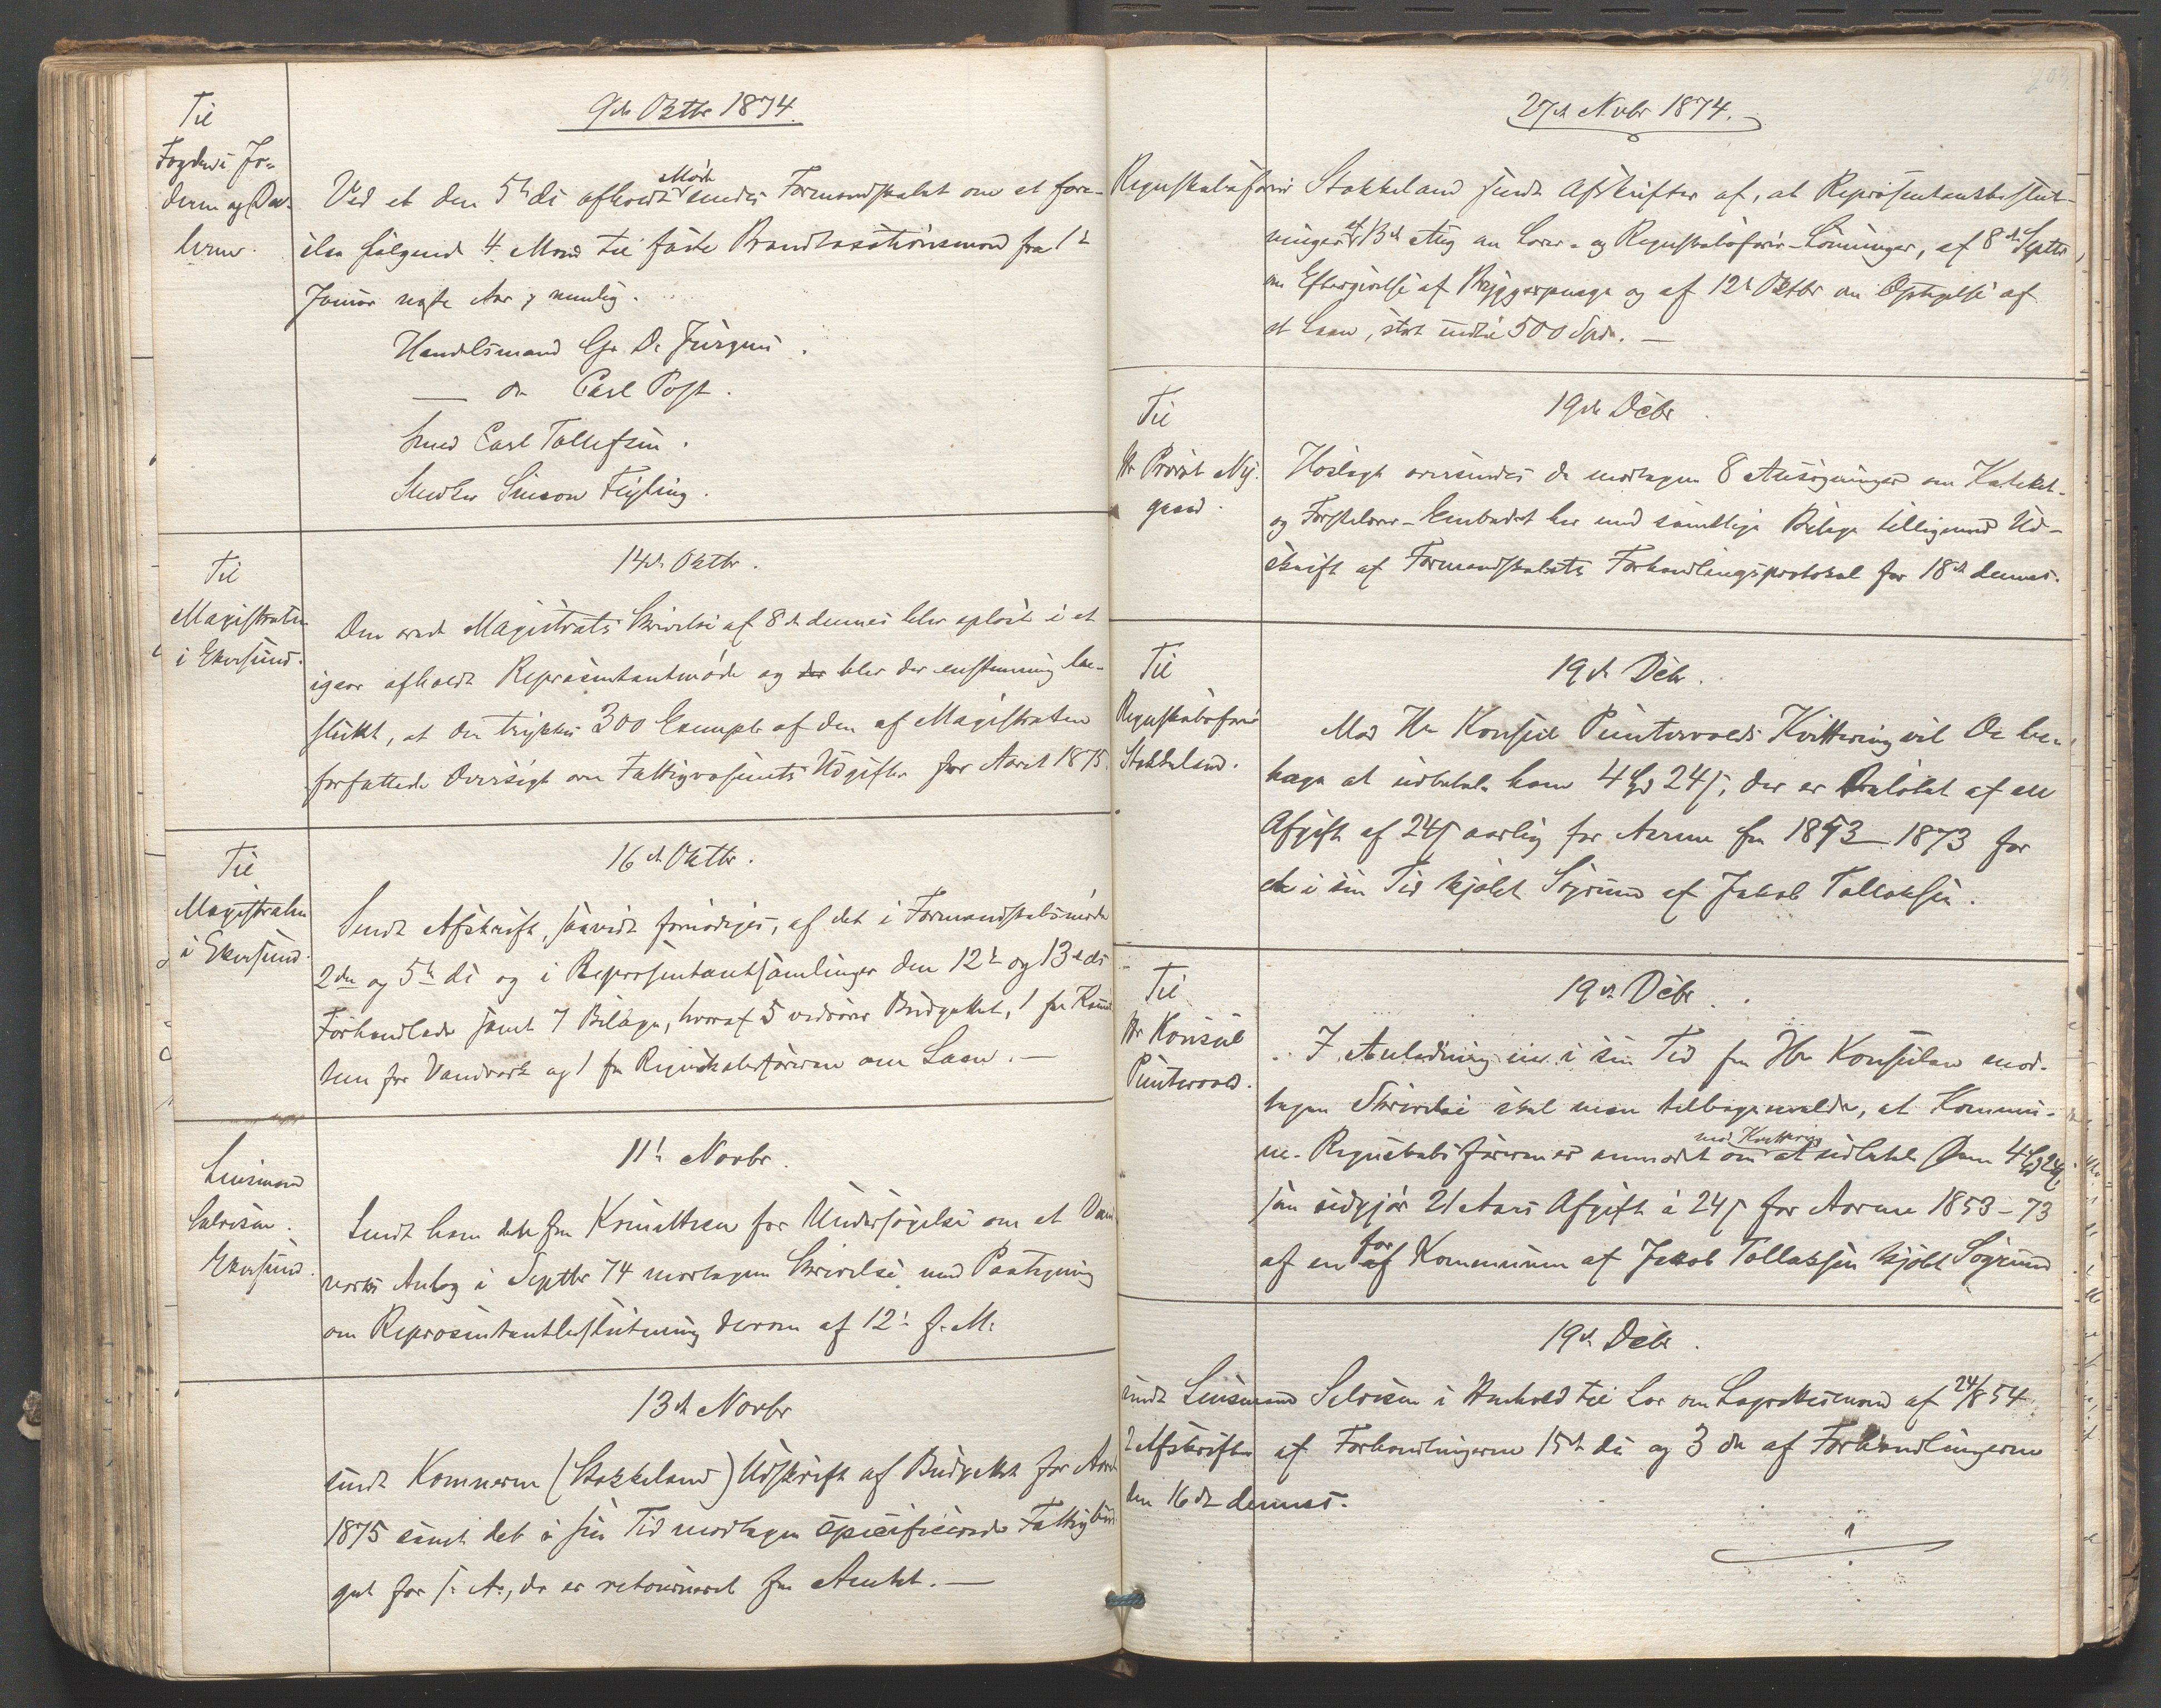 9de Oktbr 1874.
Til
Fogden i Jæ-
deren og Da-
lerne.
Ved et den 5te ds afholdt Møde Formandskabet om at fore-
slaa følgende 4 Mænd til faste Brandtaxationsmænd fra 1te
Januar næste Aar, nemlig.
Handelsmand Chr. D. Jürgens.
— do Carl Post.
Smed Carl Tollefsen.
Snedker Simon Feyling.
14de Oktbr.
Til
Magistraten
i Ekersund.
Den ærede Magistrats Skrivelse af 8de dennes blev oplæst i et
igaar afholdt Repræsentantmøde og blev der enstemmig be-
sluttet, at der trykkes 300 Exempl. af den af Magistraten
forfattede Oversigt over Fattigvæsenets Udgifter for Aaret 1875.
16de Oktbr.
Til
Magistraten
i Ekersund.
Sendt Afskrift, saavidt fornødiges, af det i Formandskabsmøde
2den og 5te ds og i Repræsentantsamlinger den 12te og 13de ds
Forhandlede samt 7 Bilage, hvoraf 5 vedrører Budgettet, 1 fra Komi-
teen for Vandværk og 1 fra Regnskabsføreren om Laan. —
11te Novbr.
Lensmand
Salvesen.
Ekersund.
Sendt ham dette fra Komitteen for Undersøgelse om et Vand-
værks Anlæg i Septbr 74 modtagne Skrivelse med Paategning
om Repræsentantbeslutning derom af 12te f. M.
13de Novbr
sendt Kæmneren (Stokkeland) Udskrift af Budgettet for Aaret
1875 samt det i sin Tid modtagne specificerede Fattigbud-
get for s. A., der er retourneret fra Amtet. —
27de Novbr 1874.
Regnskabsfører Stokkeland sendt Afskrifter af, at Repræsentantbeslut-
ninger af 13de Aug om Lærer- og Regnskabsfører-Lønninger, af 8de Septbr
om Eftergivelse af Bryggerpenge og af 12te Oktbr om Optagelse af
et Laan, stort indtil 500 Spd. —
19de Debr
Til
Hr Provst Ny-
gaard.
Hoslagt oversendes de modtagne 8 Ansøgninger om Kateket-
og Førstelærer-Embedet her med samtlige Bilage tilligemed Ud-
skrift af Formandskabets Forhandlingsprotokol for 18de dennes.
19de Debr.
Til
Regnskabsfører
Stokkeland.
Mod Hr Konsul Puntervolds Kvittering vil De be-
hage at udbetale ham 4 Spd 24 s, der er Beløbet af en
Afgift af 24 s aarlig for Aarene fra 1853–1873 for
et i sin Tid kjøbt Søgrund af Jakob Tollaksen.
19de Debr.
Til
Hr Konsul
Puntervold.
I Anledning en i sin Tid fra Hr Konsulen mod-
tagen Skrivelse skal man tilbagemelde, at Kommu-
ne-Regnskabsføreren er anmodet om mod Kvittering at udbetale Dem 4 Spd 24 s,
som udgjør 21 Aars Afgift à 24 s for Aarene 1853–73
af en for Kommunen af Jakob Tollaksen kjøbt Søgrund
19de Debr.
sendt Lensmand Salvesen i Henhold til Lov om Lagrettesmænd af 24/8 54
2 Afskrifter af Forhandlingerne 15de ds og 3 do af Forhandlingerne
den 16de dennes.